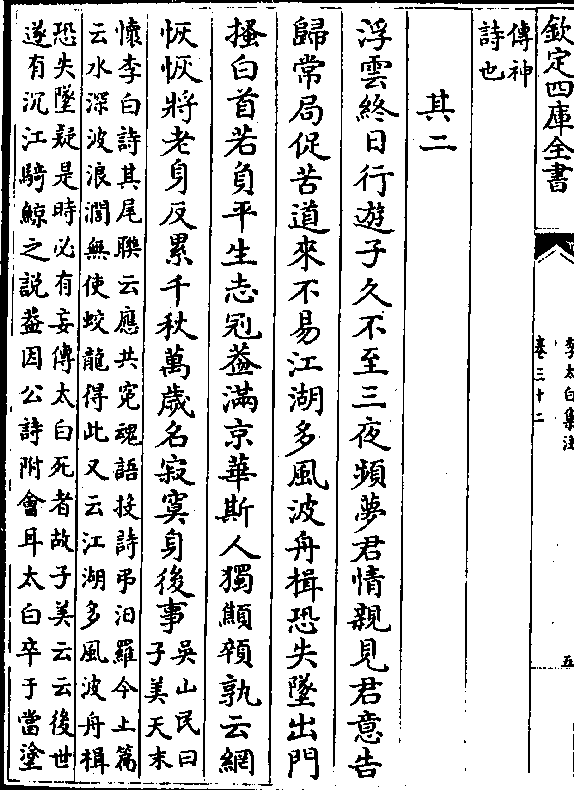 欽定四庫全書
李太白集注
卷三十二
五
傳神
詩也
其二
浮雲終日行遊子久不至三夜頻夢君情親見君意告
歸常局促苦道來不易江湖多風波舟楫恐失墜出門
搔白首若負平生志冠葢滿京華斯人獨顦顇孰云網
恢恢將老身反累千秋萬歲名寂寞身後事
吳山民曰
子美天末
懷李白詩其尾聯云應共寃魂語投詩弔汨羅今上篇
云水深波浪濶無使蛟龍得此又云江湖多風波舟楫
恐失墜疑是時必有妄傳太白死者故子美云云後世
遂有沉江騎鯨之説葢因公詩附會耳太白卒于當塗